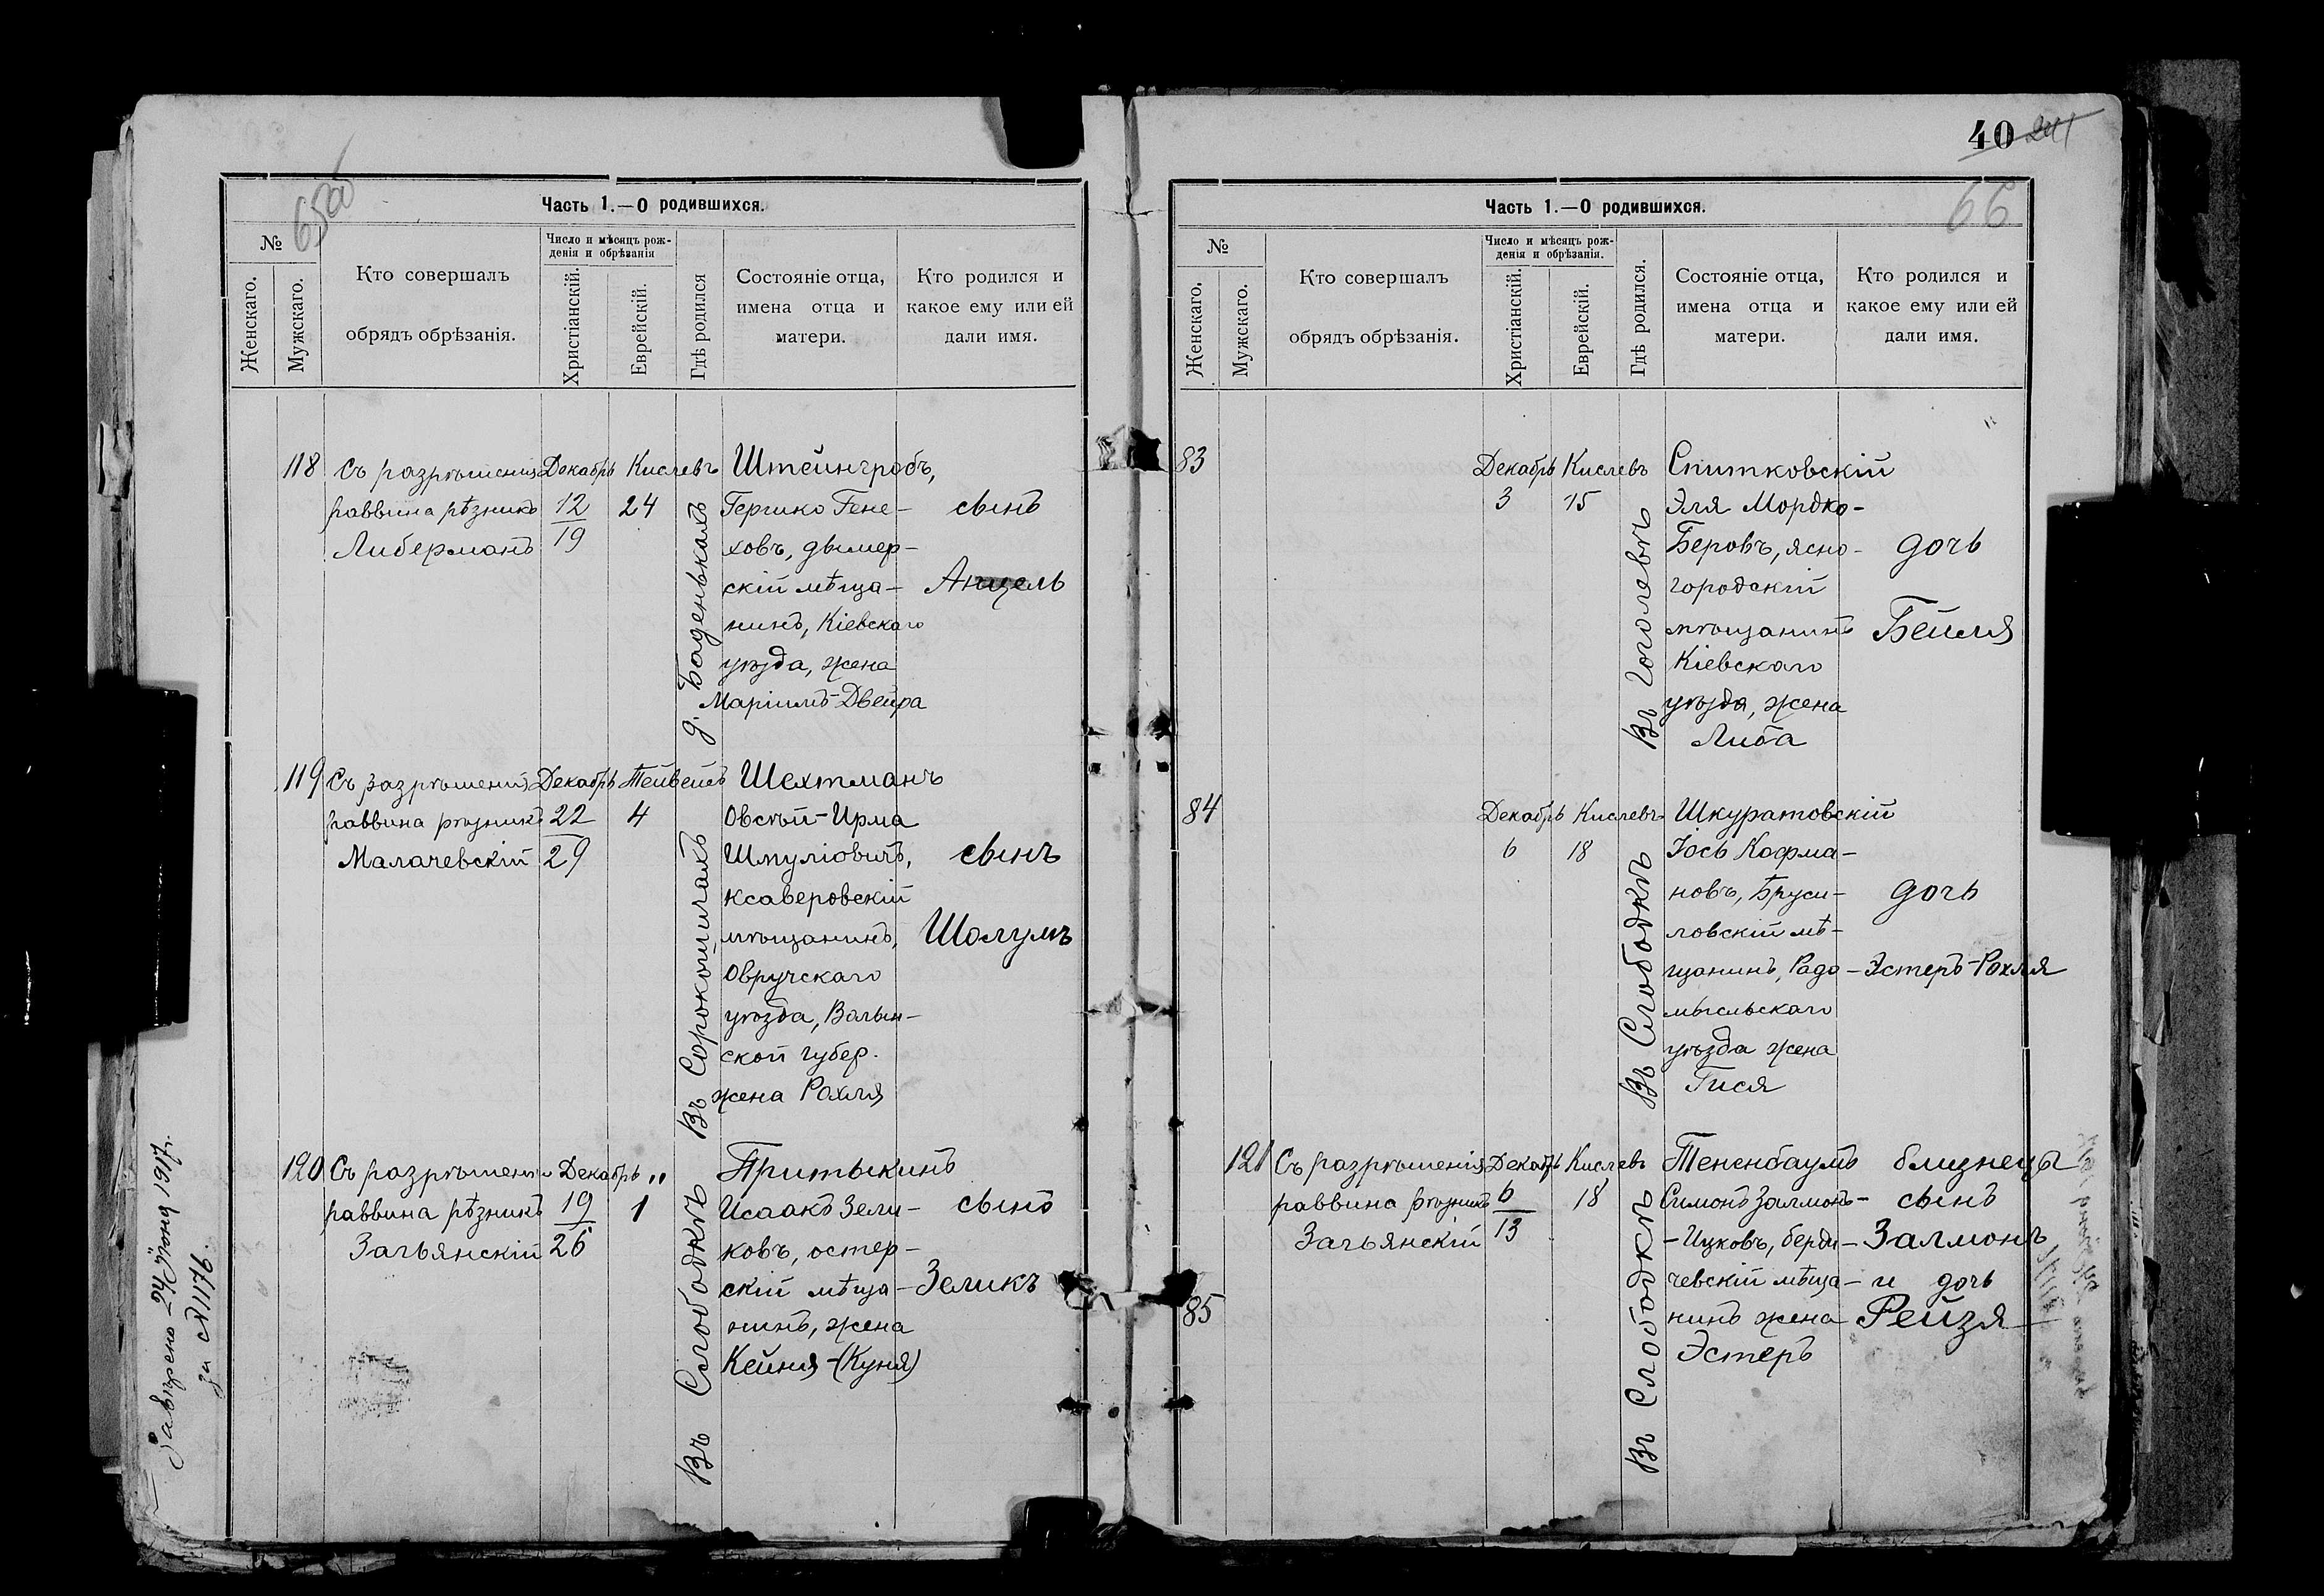 65об
Часть 1.—О родившихся.
№
Женскаго.
Мужскаго.
Кто совершалъ
обрядъ обрѣзанія.
Число и мѣсяцъ рож-
денія и обрѣзанія
Христіанскій.
Еврейскій.
Гдѣ родился
Состояніе отца,
имена отца и
матери.
Кто родился и
какое ему или ей
дали имя.
118 Съ разрѣшенія Декабрь Кислевъ Штейнгробъ,
раввина рѣзникъ 12 24 Гершко Гене-
Либерманъ 19 ховъ, дымер-
скій мѣща-
нинъ, Кіевскаго
уѣзда, жена
Маріимъ-Двейра
д. Баденькахъ
сынъ
Анцель
119 Съ разрѣшенія Декабрь Тейвейсъ Шехтманъ
раввина рѣзникъ 22 4 Овсѣй-Ирма
Малачевскій 29 Шмуліовичъ,
ксаверовскій
мѣщанинъ,
Овручскаго
уѣзда, Волын-
ской губер.
жена Рохля
Въ Сорокошичахъ
сынъ
Шолумъ
120 Съ разрѣшенія Декабрь "
раввина рѣзникъ 19 1
Зачьянскій 26
Въ Слободкѣ
Притыкинъ
Исаакъ Зели-
ковъ, остер-
скій мѣща-
нинъ, жена
Кейня-(Куня)
сынъ
Зеликъ
24 1917г.
за №1176.
40 241
66
Часть 1.—О родившихся.
№
Женскаго.
Мужскаго.
Кто совершалъ
обрядъ обрѣзанія.
Число и мѣсяцъ рож-
денія и обрѣзанія.
Христіанскій.
Еврейскій.
Гдѣ родился.
Состояніе отца,
имена отца и
матери.
Кто родился и
какое ему или ей
дали имя.
83 Декабрь Кислевъ Спитковскій
3 15 Эля Мордко-
Беровъ, ясно-
городскій
мѣщанинъ
Кіевскаго
уѣзда, жена
Либа
Въ Гоголевѣ
дочь
Бейля
84 Декабрь Кислевъ Шкуратовскій
6 18 Іось Кофма-
новъ, Бруси-
ловскій мѣ-
щанинъ, Радо-
мысльскаго
уѣзда жена
Гися
Въ Слободкѣ
дочь
Эстеръ-Рохля
121 Съ разрѣшенія Декабрь Кислевъ
раввина рѣзникъ 6 18
Зачьянскій 13
85
Въ Слободкѣ
Тененбаумъ
Симонъ Залмонъ-
-Ицковъ, берди-
чевскій мѣща-
нинъ жена
Эстеръ
близнецы
сынъ
Залмонъ
и дочь
Рейзя